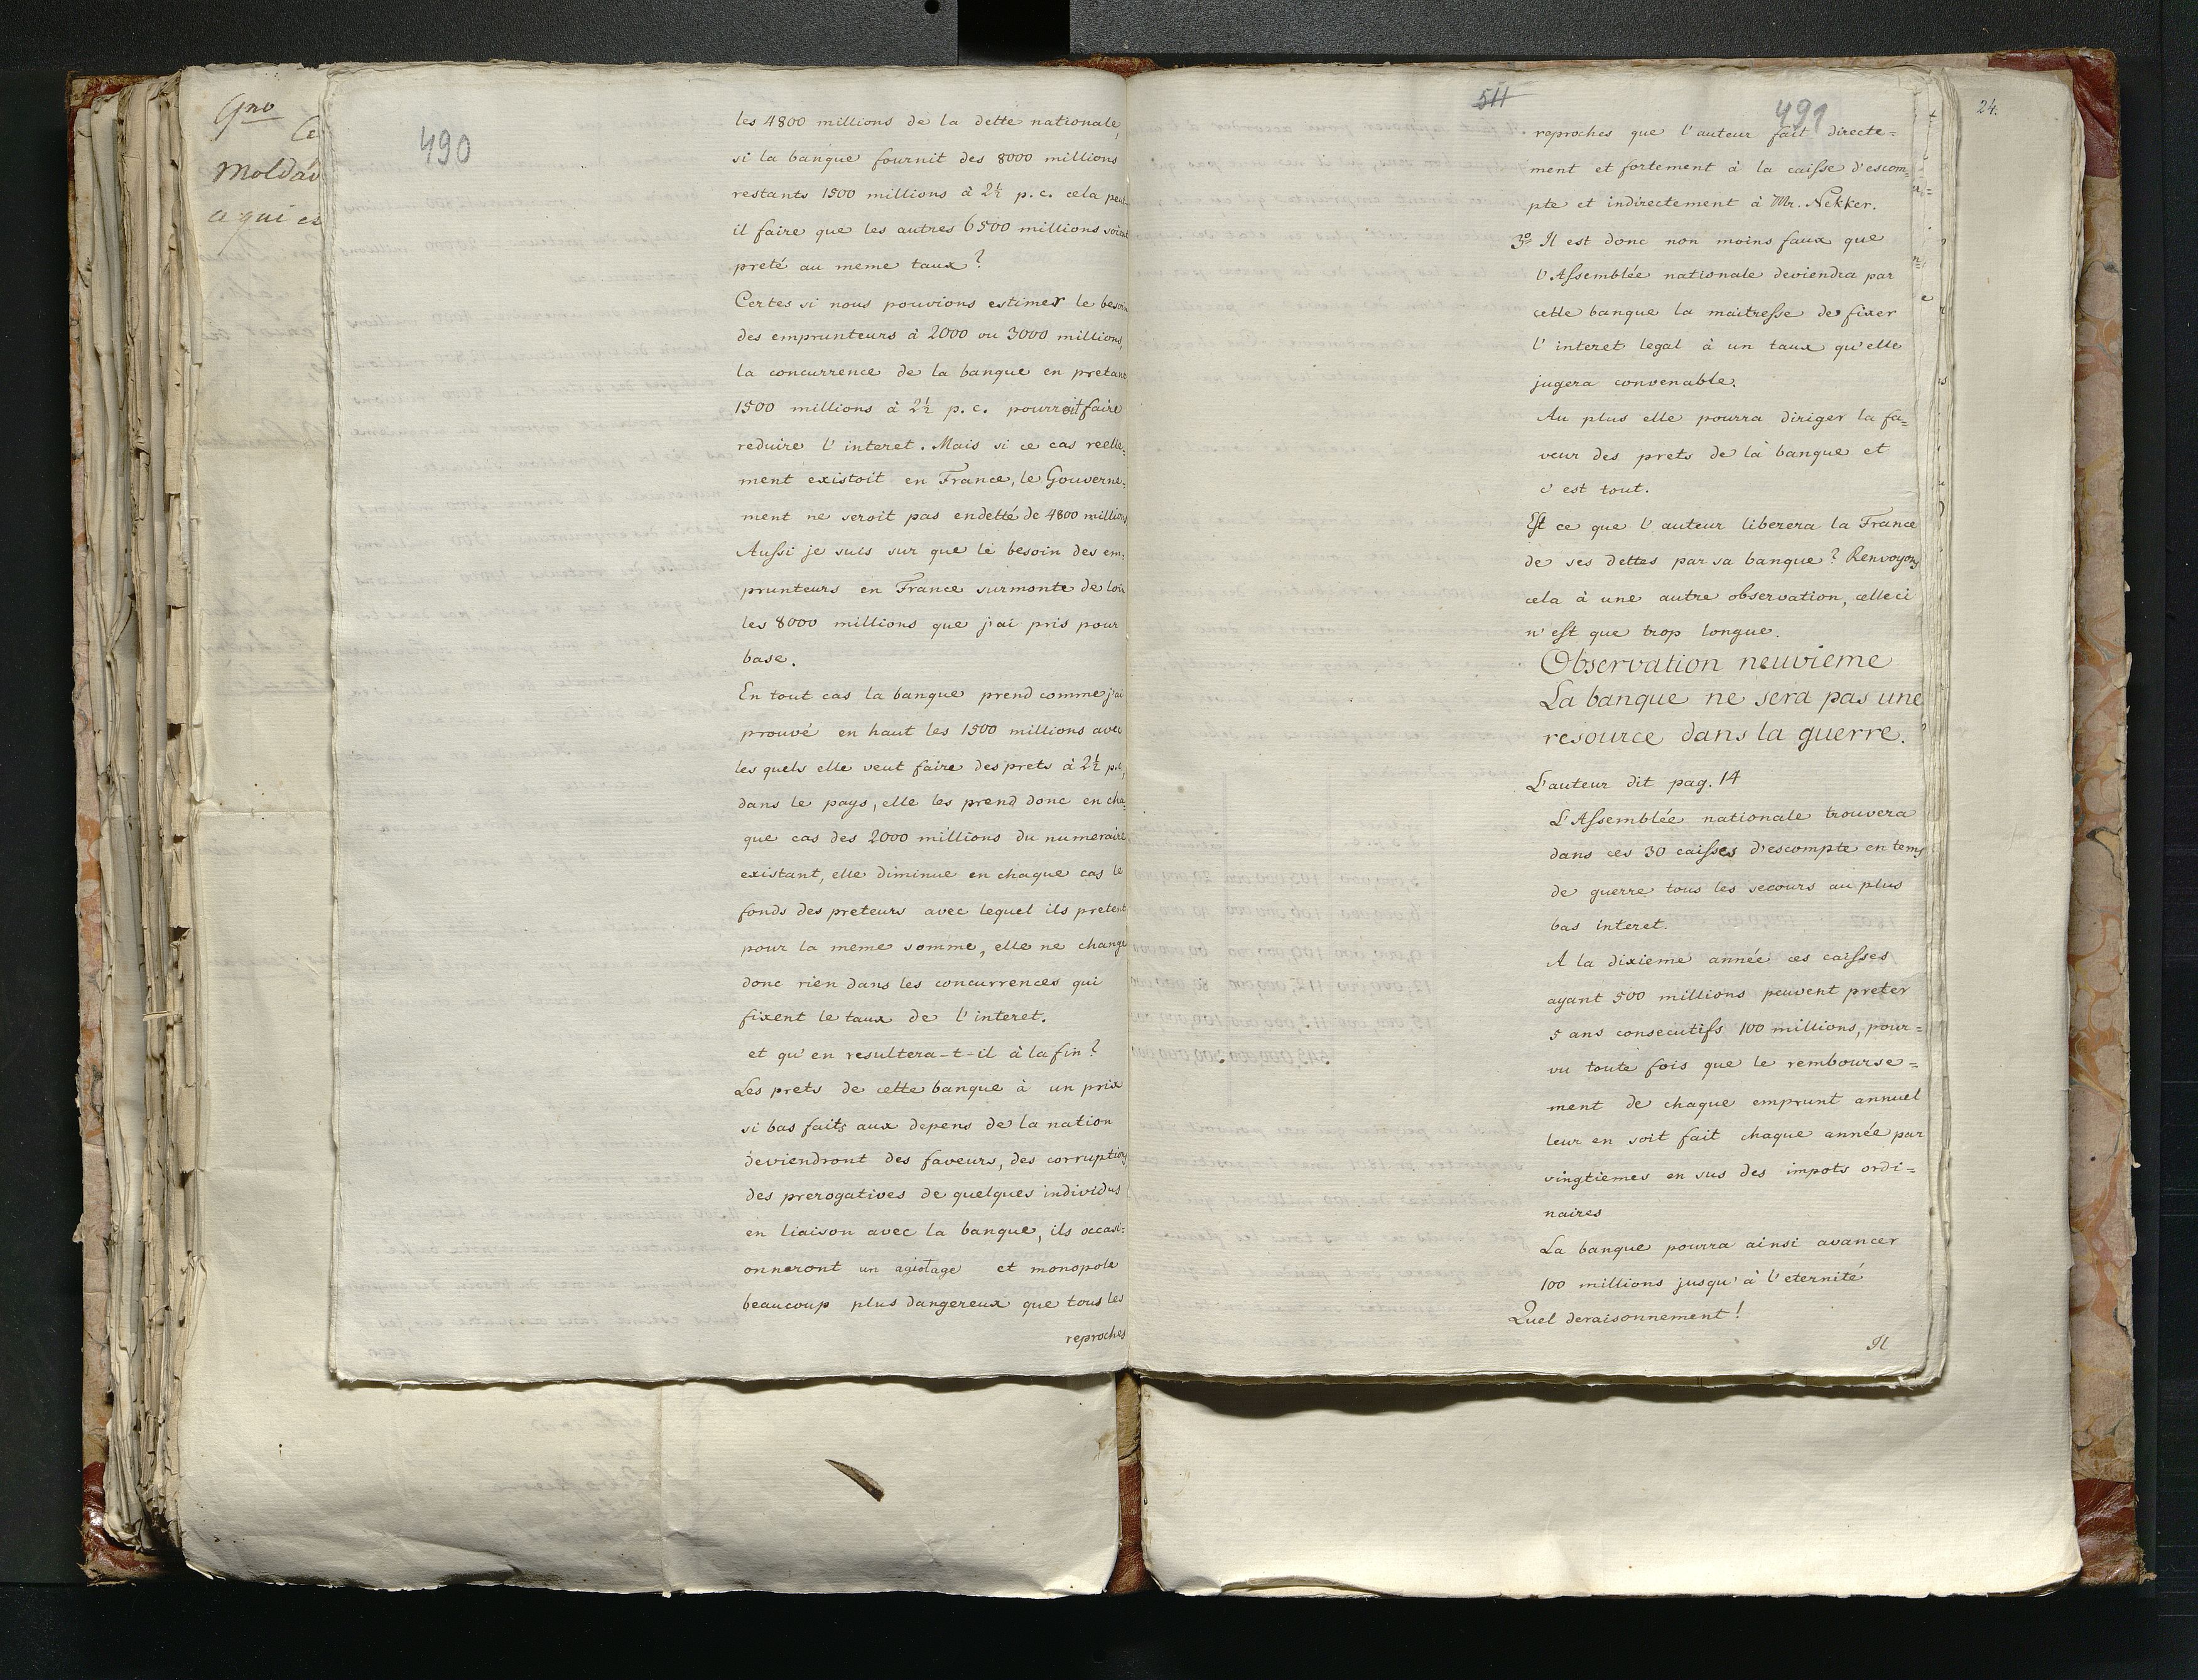 Gno
Ce
Moldav
ce qui es
490
les 4800 millions de la dette nationale,
si la banque fournit des 8000 millions
restants 1500 millions à 2½ p. c. cela peut
il faire que les autres 6500 millions soient
preté au meme taux?
Certes si nous pouvions estimer le besoin
des emprunteurs à 2000 ou 3000 millions,
la concurrence de la banque en pretant
1500 millions à 2½ p. c. pourroit faire
reduire l'interet. Mais si ce cas reelle=
ment existoit en France, le Gouverne=
ment ne seroit pas endetté de 4800 millions
Aussi je suis sur que le besoin des em=
prunteurs en France surmonte de loin
les 8000 millions que j'ai pris pour
base.
En tout cas la banque prend comme j'ai
prouvé en haut les 1500 millions avec
les quels elle veut faire des prets à 2½ p.c,
dans le pays, elle les prend donc en cha=
que cas des 2000 millions du numeraire
existant, elle diminue en chaque cas le
fonds des preteurs avec lequel ils pretent
pour la meme somme, elle ne change
donc rien dans les concurrences qui
fixent le taux de l'interet.
et qu'en resultera-t-il à la fin?
Les prets de cette banque à un prix
si bas faits aux depens de la nation
deviendront des faveurs, des corruptions
des prerogatives de quelques individus
en liaison avec la banque, ils occasi=
onneront un agiotage et monopole
beaucoup plus dangereux que tous les
reproches
511
491
24.
reproches que l'auteur fait directe=
ment et fortement à la caisse d'escom=
pte et indirectement à Mr. Nekker.
3º Il est donc non moins faux que
l'Assemblée nationale deviendra par
cette banque la maitresse de fixer
l'interet legal à un taux qu'elle
jugera convenable.
Au plus elle pourra diriger la fa=
veur des prets de la banque et
c'est tout.
Est ce que l'auteur liberera la France
de ses dettes par sa banque? Renvoyons
cela à une autre observation, celle ci
n'est que trop longue.
Observation neuvieme
La banque ne sera pas une
resource dans la guerre.
L'auteur dit pag. 14
L'Assemblée nationale trouvera
dans ces 30 caisses d'escompte en tems
de guerre tous les secours au plus
bas interet.
A la dixieme année ces caisses
ayant 500 millions peuvent preter
5 ans consecutifs 100 millions, pour=
vu toute fois que le rembourse=
ment de chaque emprunt annuel
leur en soit fait chaque année par
vingtiemes en sus des impots ordi=
naires
La banque pourra ainsi avancer
100 millions jusqu'à l'eternité
Quel deraisonnement!
Il